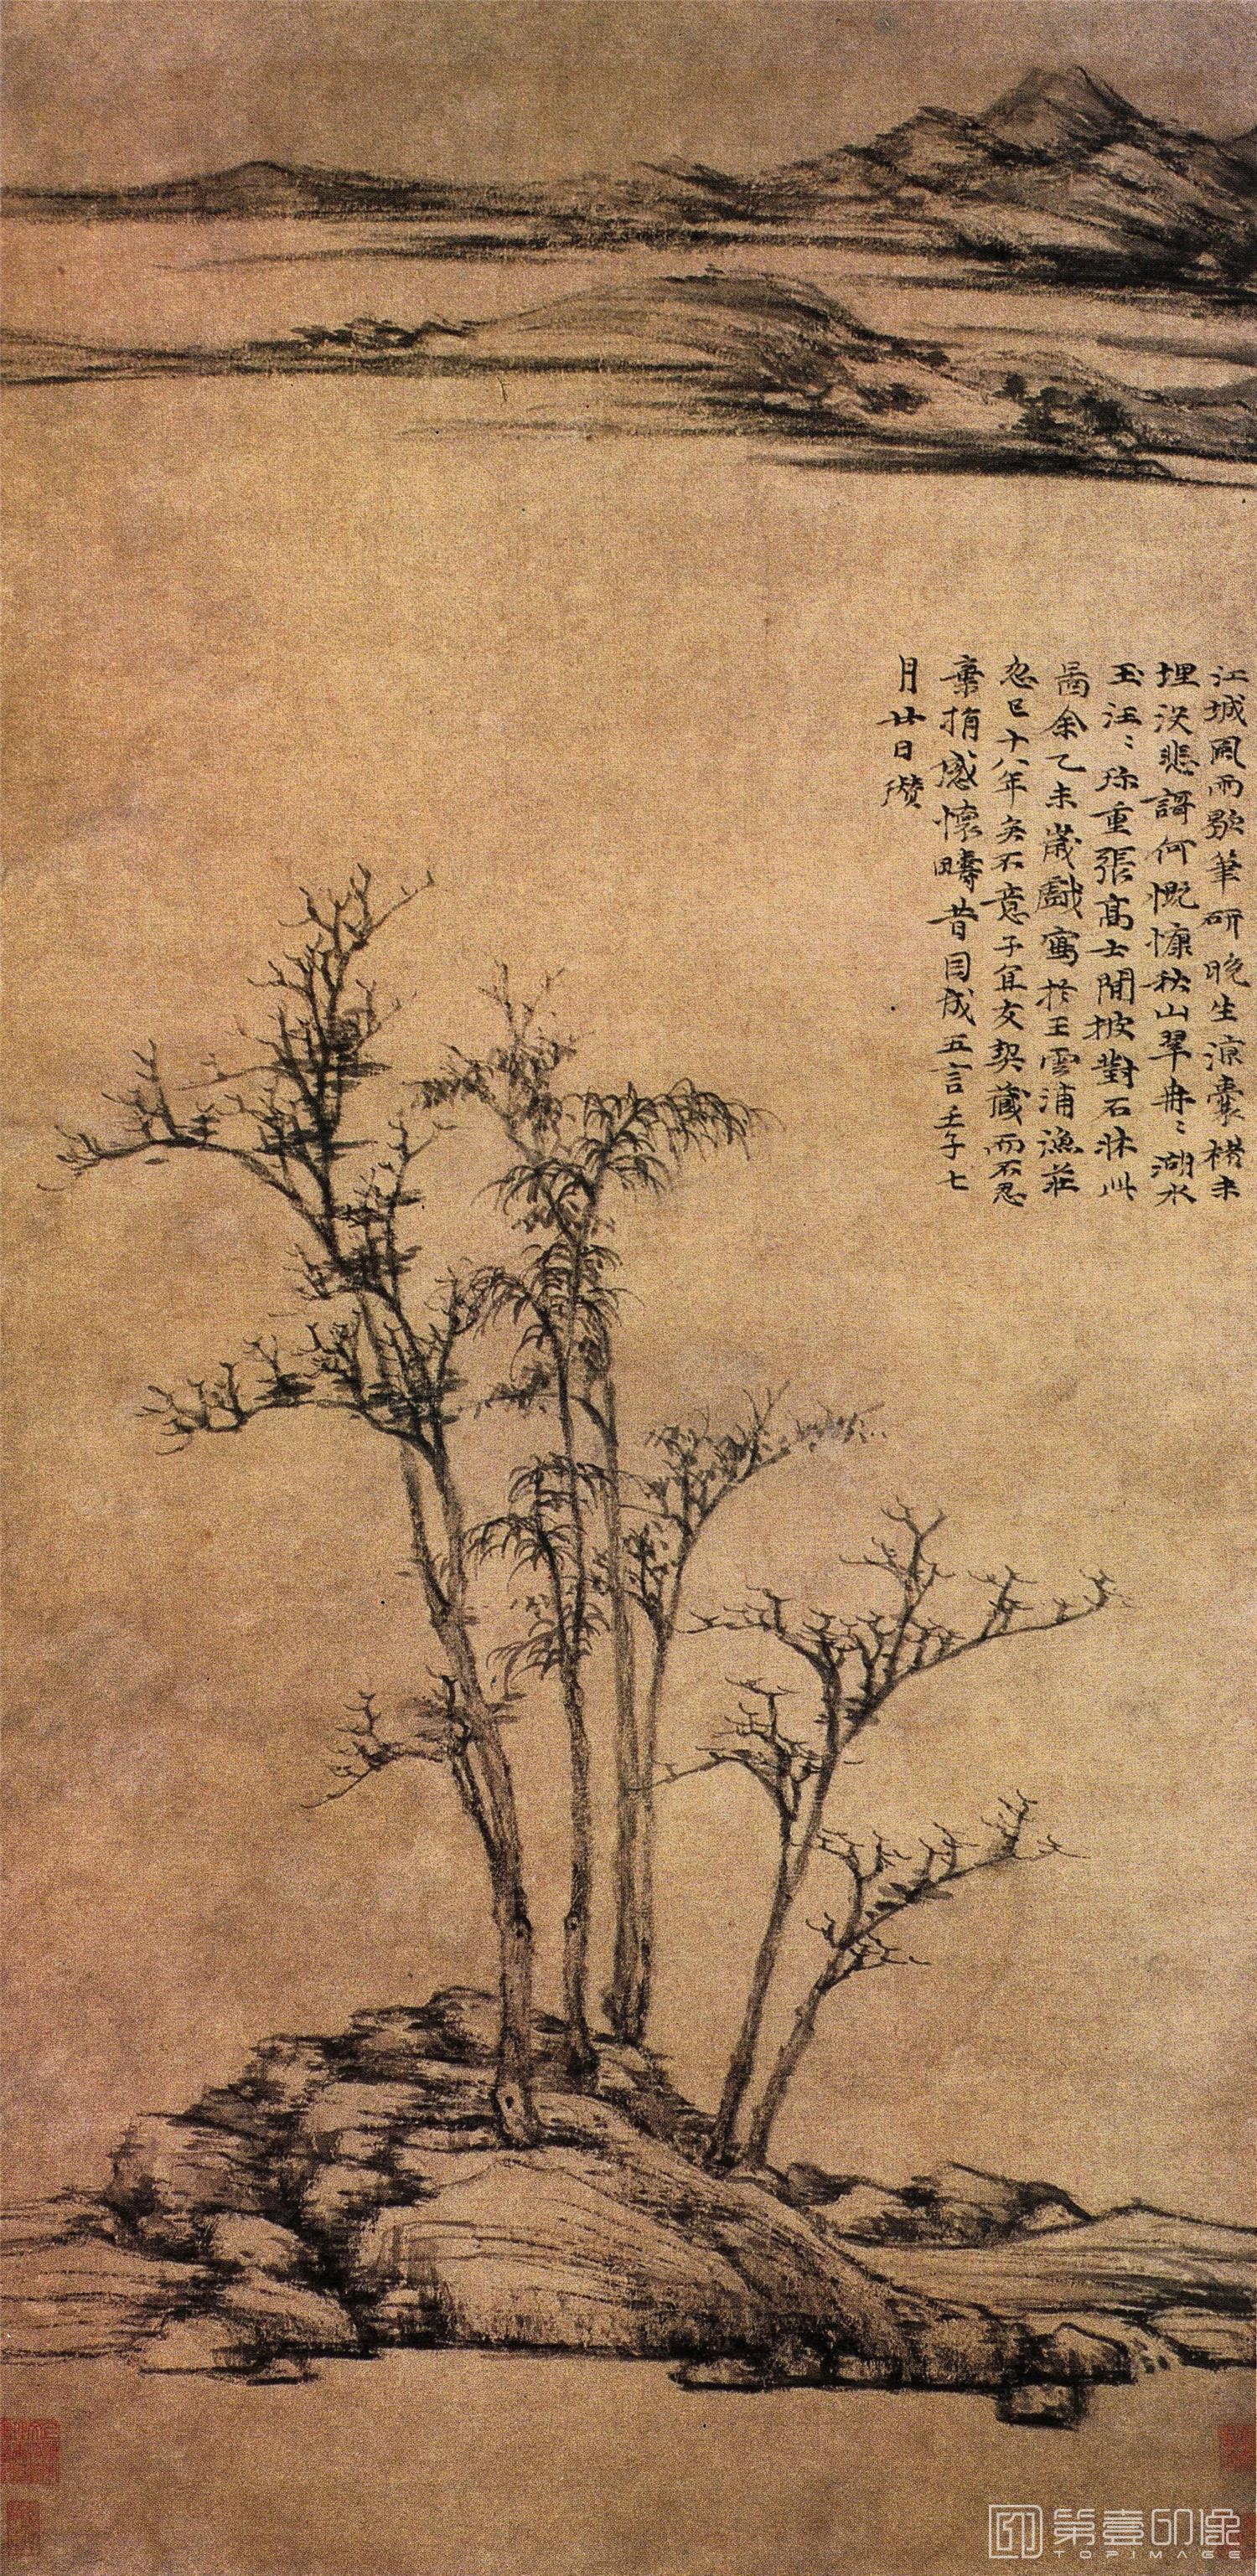 江城風雨歇筆研晚生涼囊楮未
埋沒悲謌何慨慷秋山翠冉〻湖水
玉汪〻珍重張高士閒披對石牀此
啚余乙未歲戲寫於王雲浦漁莊
忽已十八年矣不意子宜友契藏而不忍
棄捐感懷疇昔因成五言壬子七
月廿日瓚
第壹印像
TOPIMAGE